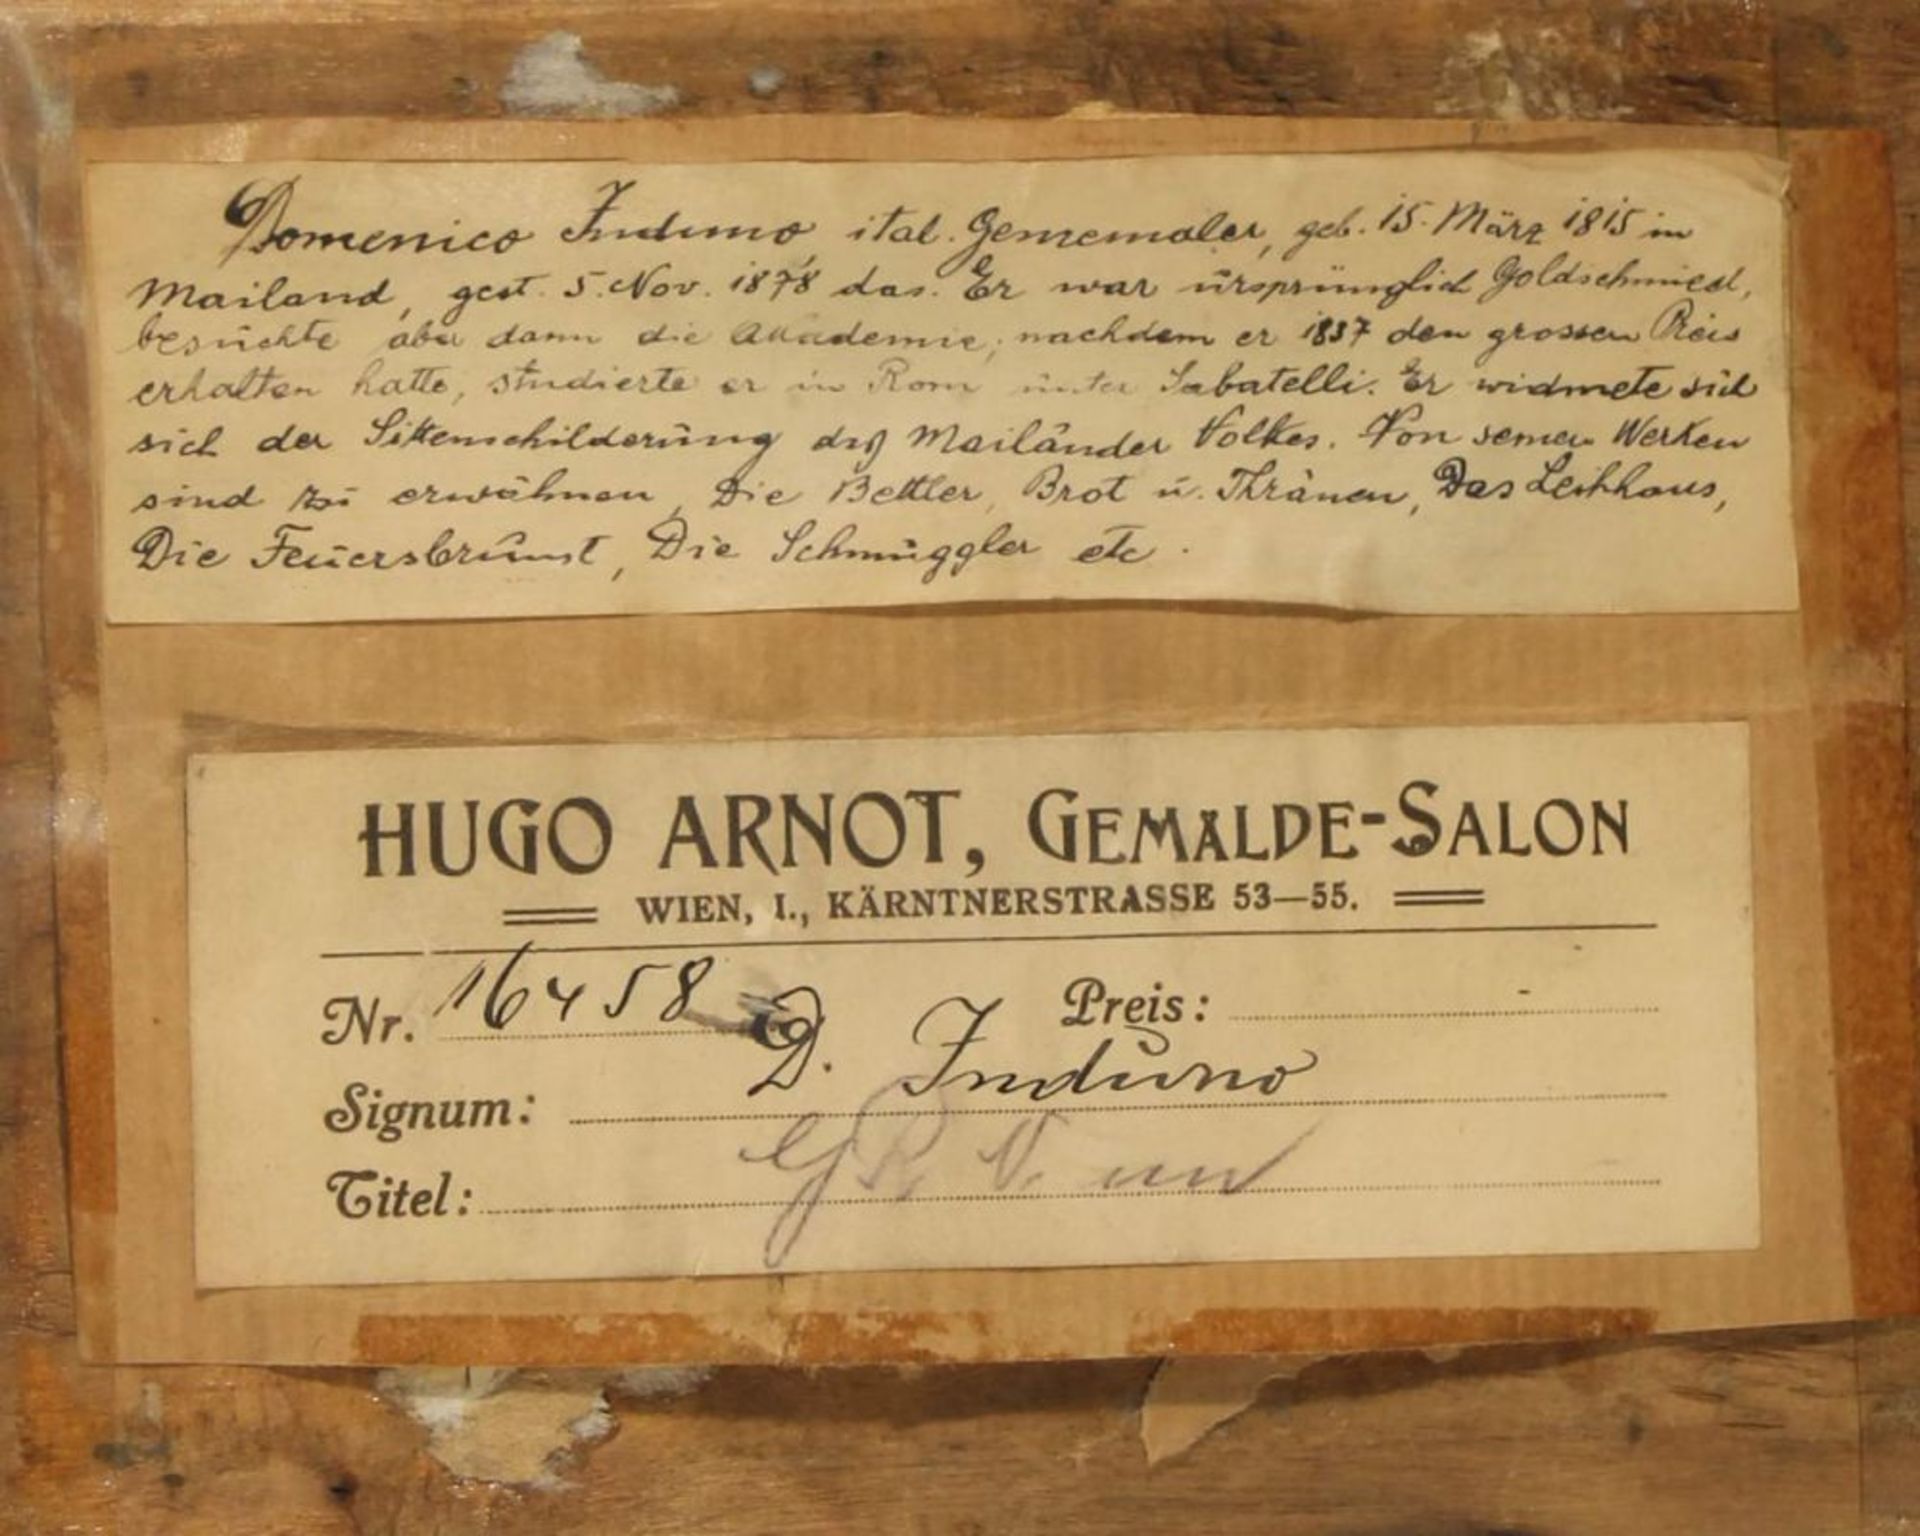 Domenico Induno, ital. Genremaler, geb. 15. März 1815 in
Mailand, gest. 5. Nov. 1878 das. Er war ursprünglich Goldschmied,
besuchte aber dann die Akademie; nachdem er 1837 den grossen Preis
erhalten hatte, studierte er in Rom unter Sabatelli. Er widmete sich
sich der Sittenschilderung des Mailänder Volkes. Von seinen Werken
sind zu erwähnen, Die Bettler, Brot u. Thränen, Das Leihhaus,
Die Feuersbrunst, Die Schmuggler etc.
HUGO ARNOT, GEMÄLDE-SALON
WIEN, I., KÄRNTNERSTRASSE 53—55.
Nr. 16458 Preis:
Signum: D. Induno
Titel: